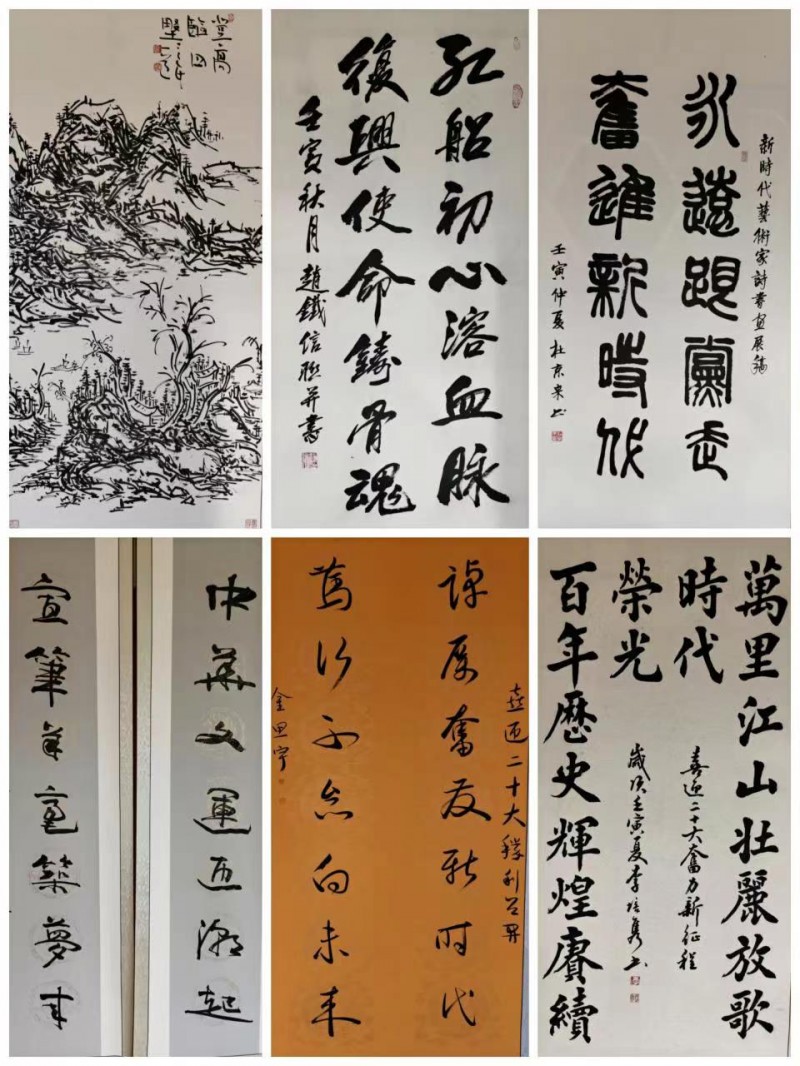 登高
臨四
野
红船初心溶血脉
復興使命鑄骨魂
壬寅秋月趙鐵信聯并書
新時代藝術家詩書畫展稿
永遠跟黨走
奮進新時代
壬寅仲夏杜京
中華文運迎潮起
宣筆羊毫築夢来
喜迎二十大勝利召開
踔厉奮发新时代
篤行不怠向未来
金思宇
萬里江山壯麗放歌
時代
榮光
百年歷史輝煌賡續
喜迎二十大奮力新征程
歲次壬寅夏李培雋书